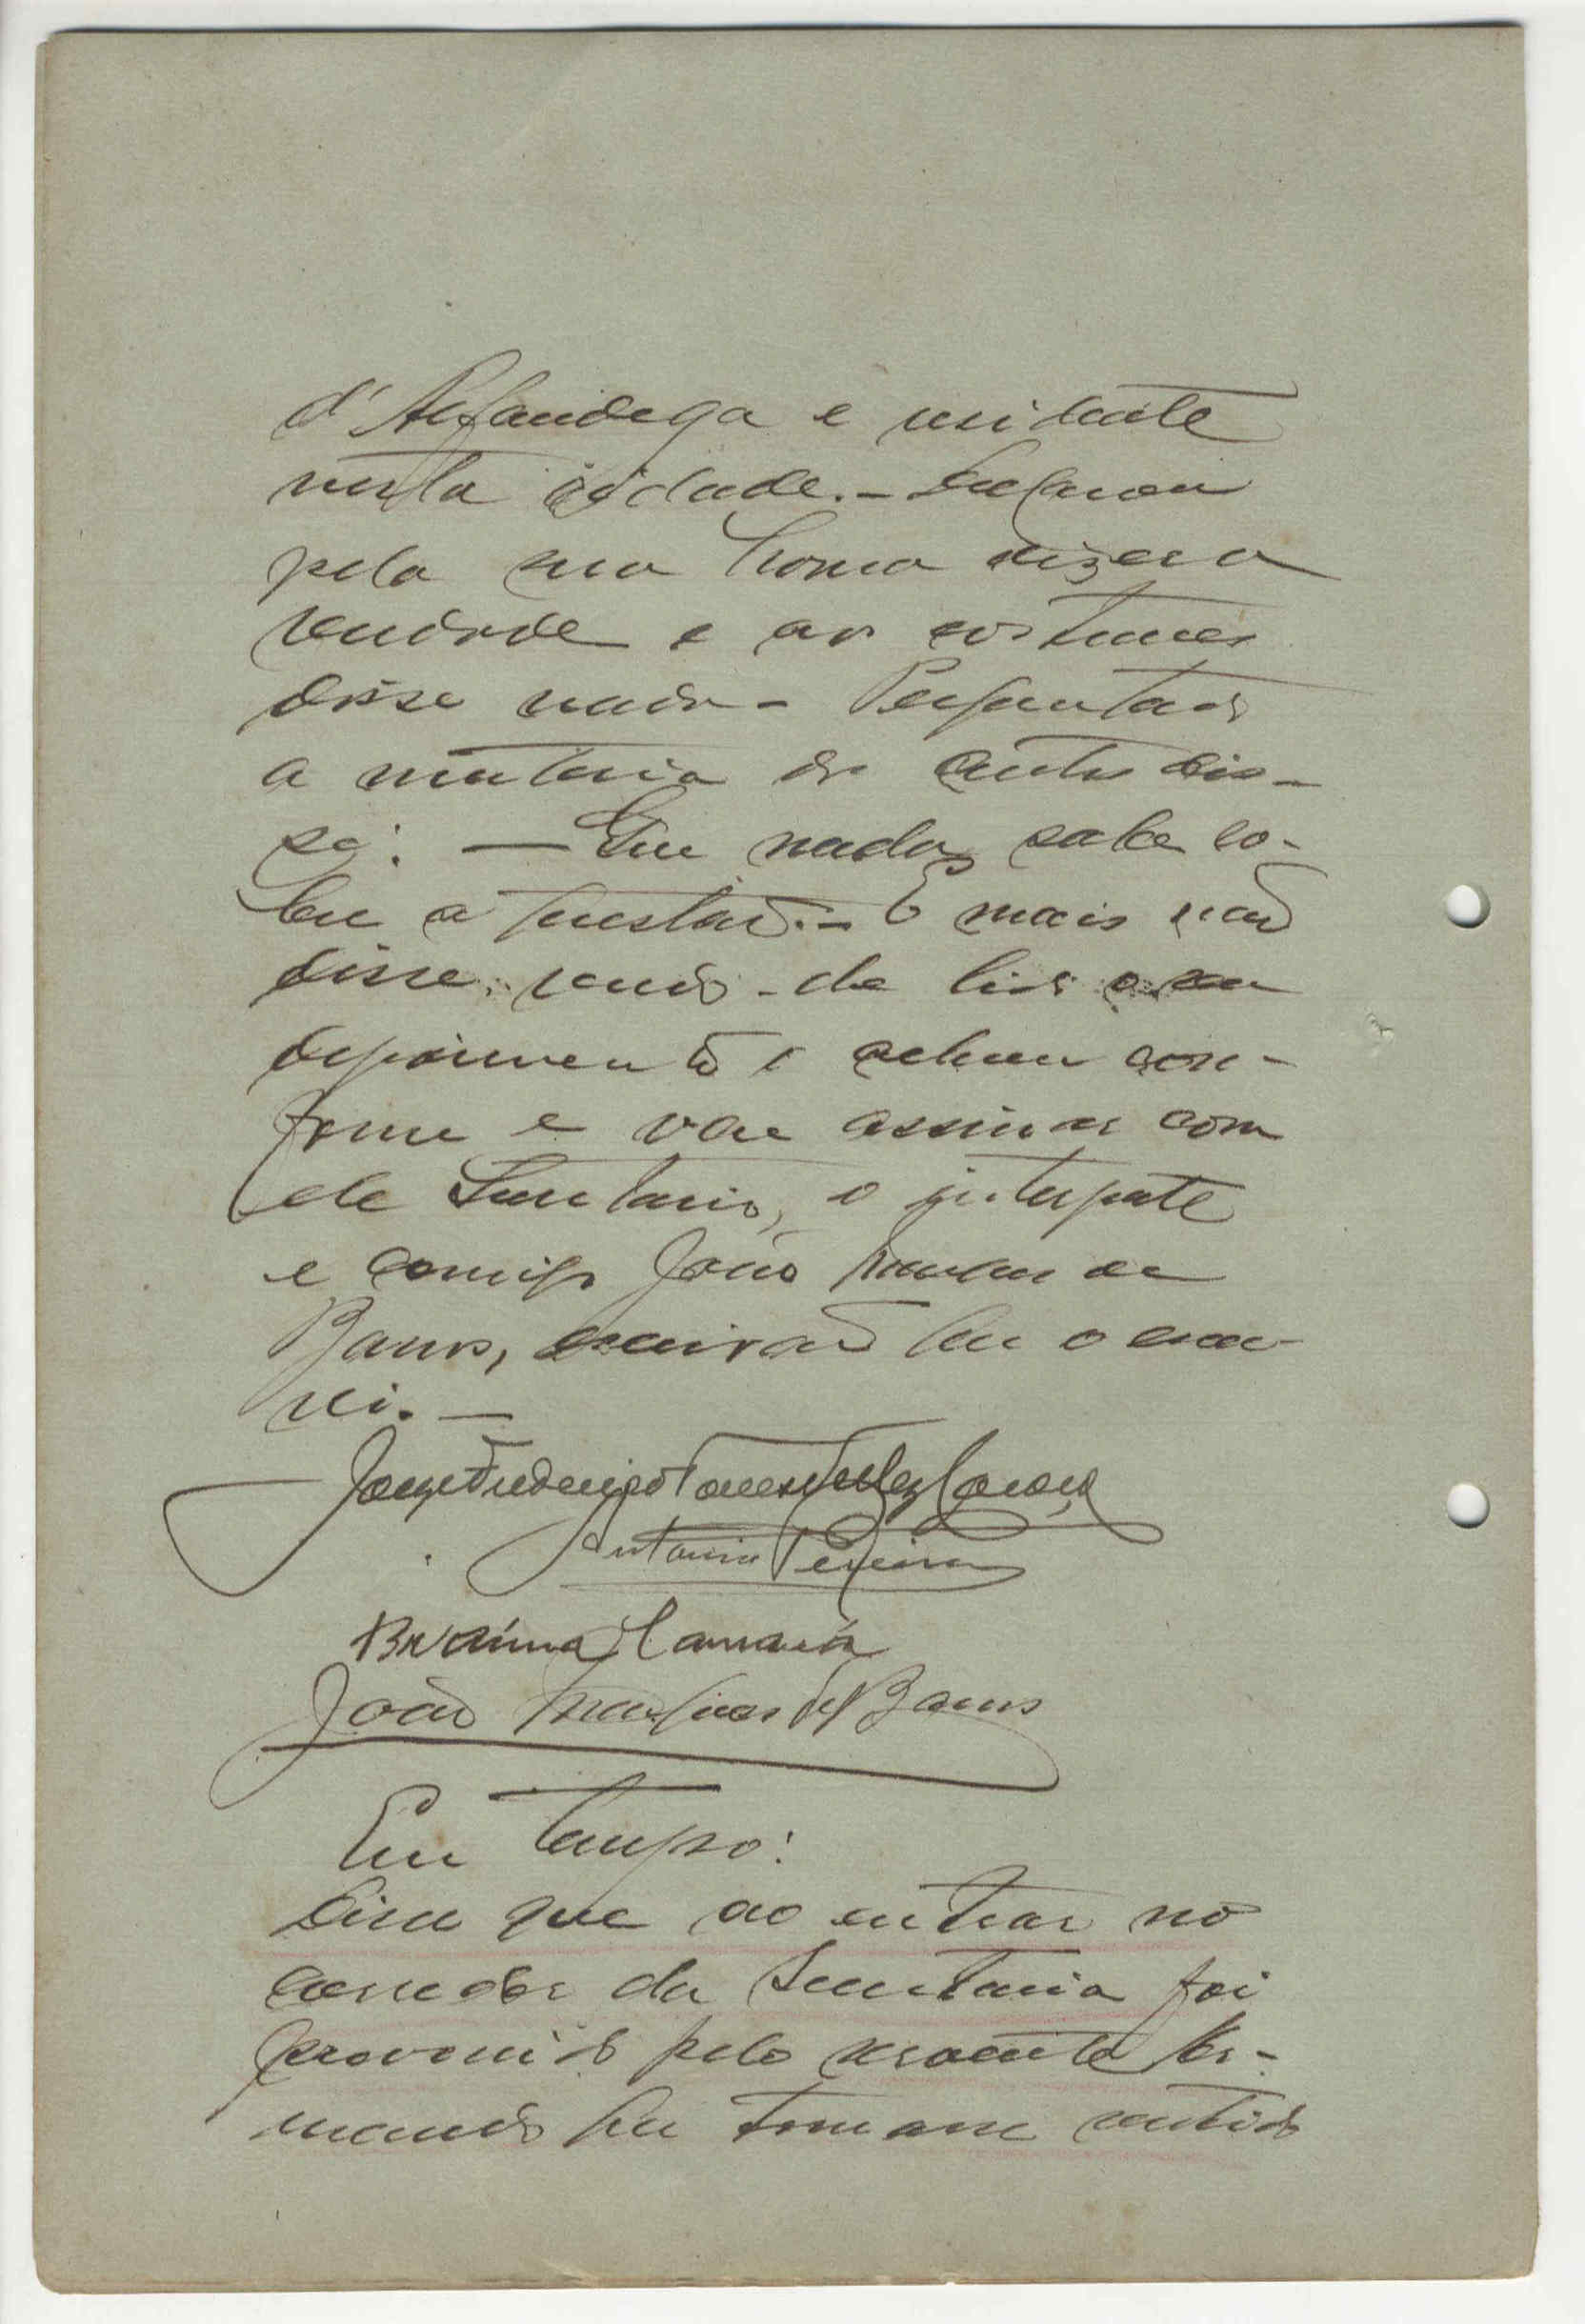 d'Alfandega e residente
nesta cidade. - Declarou
pela sua honra dizer a
verdade e aos costumes
disse nada - Perguntado
a materia do auto dis-
se: — Que nada sabe so-
bre a questão. - E mais não
disse, sendo-lhe lido o seu
depoimento e achou con-
forme e vae assinar com
ele Secretario, o interprete
e comigo João Martins de
Barros, escrivão que o escre-
vi. —
Jorge Frederico Torres Velez Caroço
Antonio Pereira
Braima Camará
João Martins de Barros
Em tempo:
Disse que ao entrar no
corredor da Secretaria foi
prevenido pelo servente
que tomasse sentido